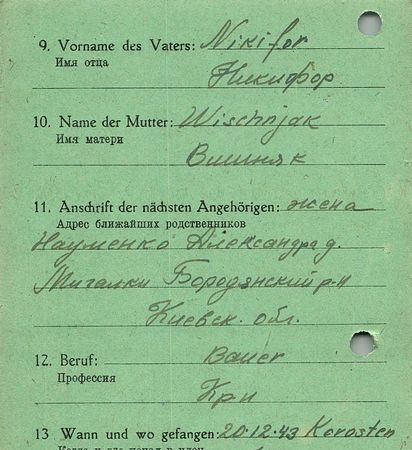 9. Vorname des Vaters: Nikifor
Имя отца
Никифор
10. Name der Mutter: Wischnjak
Имя матери
Вишняк
11. Anschrift der nächsten Angehörigen: жена
Адрес ближайших родственников
Науменко Александра д.
Мигалки Бородянский р-н
Киевск. обл.
12. Beruf: Bauer
Профессия
Кр
13 Wann und wo gefangen: 20.12.43 Korosten
Когда и где попал в плен